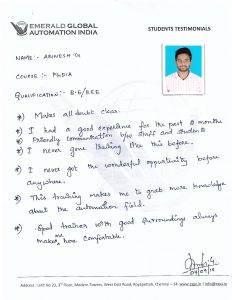 EMERALD GLOBAL
AUTOMATION INDIA
STUDENTS TESTIMONIALS
NAME:- AVINESH.G
COURSE:- PGDIA
QUALIFICATION:- B.E/EEE
*) Makes all doubt class.
*) I had a good experience for the past 2 months
*) Friendly communication b/w staff and students
*) I never gone training like this before.
*) I never get the wonderful opportunity before
anywhere.
*) This training makes me to grab more knowledge
about the automation field.
*) Good trainer with good surroundings always
makes me here comfortable.
Address : Unit No 23, 3rd Floor, Modern Towers, West Cott Road, Royapettah, Chennai – 14